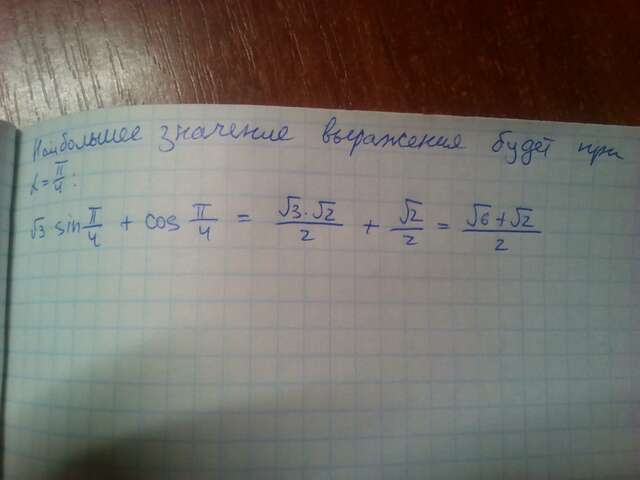 Наибольшее значение выражения будет при
α = π/4 :
√3 sin π/4 + cos π/4 = √3·√2/2 + √2/2 = √6+√2/2